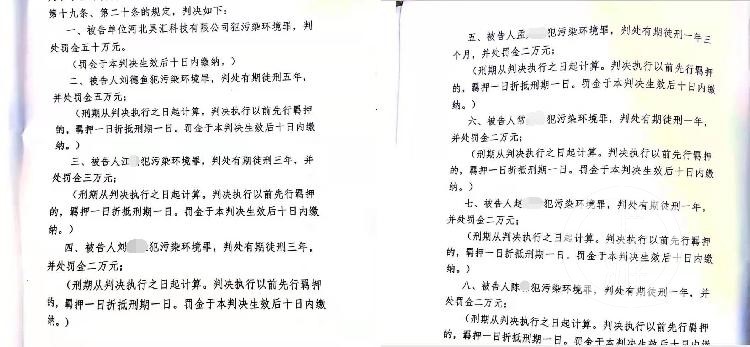 第十九条、第二十条的规定，判决如下：
一、被告单位河北昊汇科技有限公司犯污染环境罪，判
处罚金五十万元。
(罚金于本判决生效后十日内缴纳。)
二、被告人刘德鱼犯污染环境罪，判处有期徒刑五年，
并处罚金五万元；
(刑期从判决执行之日起计算。判决执行以前先行羁押
的，羁押一日折抵刑期一日。罚金于本判决生效后十日内缴
纳。)
三、被告人江 犯污染环境罪，判处有期徒刑三年，并
处罚金三万元；
(刑期从判决执行之日起计算。判决执行以前先行羁押
的，羁押一日折抵刑期一日。罚金于本判决生效后十日内缴
纳。)
四、被告人刘 犯污染环境罪，判处有期徒刑三年，
并处罚金二万元；
(刑期从判决执行之日起计算。判决执行以前先行羁押
的，羁押一日折抵刑期一日。罚金于本判决生效后十日内缴
纳。)
五、被告人孟 犯污染环境罪，判处有期徒刑一年三
个月，并处罚金二万元；
(刑期从判决执行之日起计算。判决执行以前先行羁押
的，羁押一日折抵刑期一日。罚金于本判决生效后十日内缴
纳。)
六、被告人 犯污染环境罪，判处有期徒刑一年，
并处罚金二万元；
(刑期从判决执行之日起计算。判决执行以前先行羁押
的，羁押一日折抵刑期一日。罚金于本判决生效后十日内缴
纳。)
七、被告人赵 犯污染环境罪，判处有期徒刑一年，
并处罚金二万元；
(刑期从判决执行之日起计算。判决执行以前先行羁押
的，羁押一日折抵刑期一日。罚金于本判决生效后十日内缴
纳。)
八、被告人陈 犯污染环境罪，判处有期徒刑一年，并
处罚金二万元；
(刑期从判决执行之日起计算。判决执行以前先行羁押
的，羁押一日折抵刑期一日。罚金于本判决生效后十日内缴